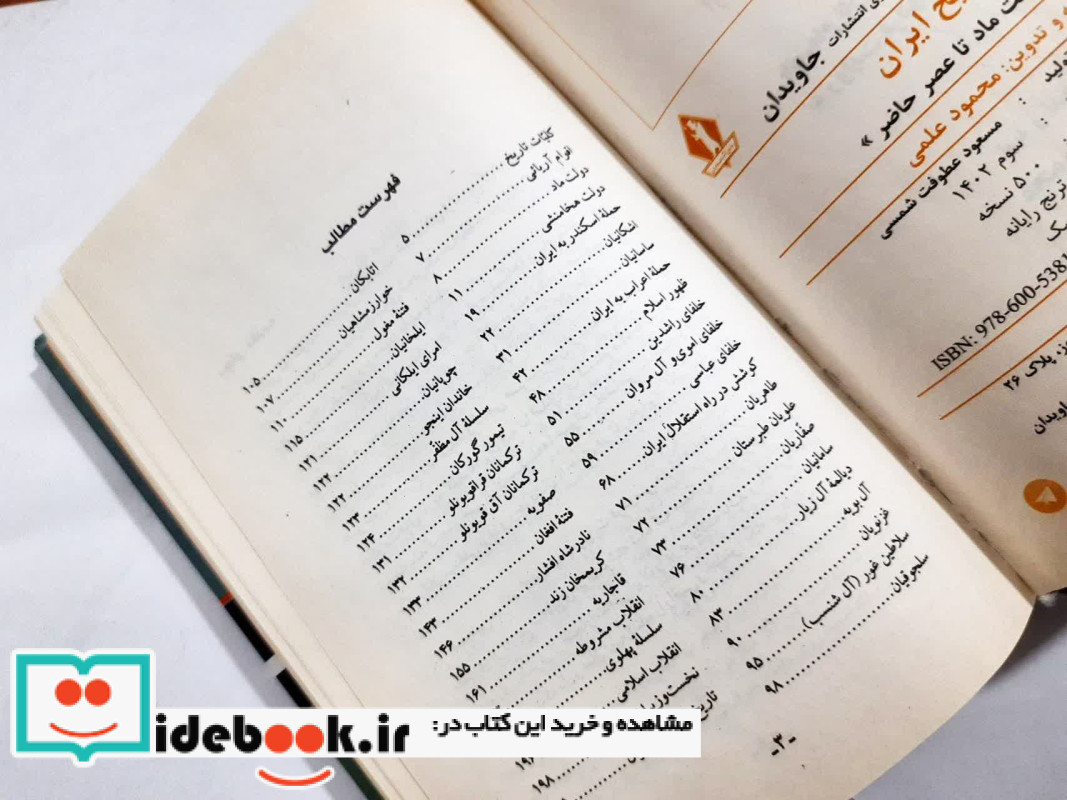 انتشارات جاویدان
ایران
ماد تا عصر حاضر »
و تدوین: محمود علمی
تولید
مسعود عطوفت شمسی
سوم ۱۴۰۲
۵۰۰ نسخه
ترنج رایانه
ISBN: 978-600-5381
پلاک ۲۶
جاویدان
فهرست مطالب
کلیّات تاریخ ..... ۵
اقوام آریائی ..... ۷
دولت ماد ..... ۸
دولت هخامنشی ..... ۱۱
حملهٔ اسکندر به ایران ..... ۱۹
اشکانیان ..... ۲۲
ساسانیان ..... ۳۱
حملهٔ اعراب به ایران ..... ۴۲
ظهور اسلام ..... ۴۸
خلفای راشدین ..... ۵۱
خلفای اموی و آل مروان ..... ۵۵
خلفای عباسی ..... ۵۹
کوشش در راه استقلال ایران ..... ۶۸
طاهریان ..... ۷۱
علویان طبرستان ..... ۷۲
صفّاریان ..... ۷۳
سامانیان ..... ۷۶
دیالمهٔ آل زیار ..... ۸۰
آل بویه ..... ۸۳
غزنویان ..... ۹۰
سلاطین غور (آل شنسب) ..... ۹۵
سلجوقیان ..... ۹۸
اتابکان ..... ۱۰۵
خوارزمشاهیان ..... ۱۰۷
فتنهٔ مغول ..... ۱۱۰
ایلخانیان ..... ۱۱۵
امرای ایلکانی ..... ۱۲۱
چوپانیان ..... ۱۲۲
خاندان اینجو ..... ۱۲۲
سلسلهٔ آل مظفّر ..... ۱۲۳
تیمور گورکان ..... ۱۲۴
ترکمانان قراقویونلو ..... ۱۳۱
ترکمانان آق قویونلو ..... ۱۳۲
صفویه ..... ۱۳۳
فتنهٔ افغان ..... ۱۴۳
نادرشاه افشار ..... ۱۴۶
کریمخان زند ..... ۱۵۵
قاجاریه ..... ۱۶۱
انقلاب مشروطه
سلسلهٔ پهلوی
انقلاب اسلامی
۱۹۸
-۳-
idebook.ir
مشاهده و خرید این کتاب در: